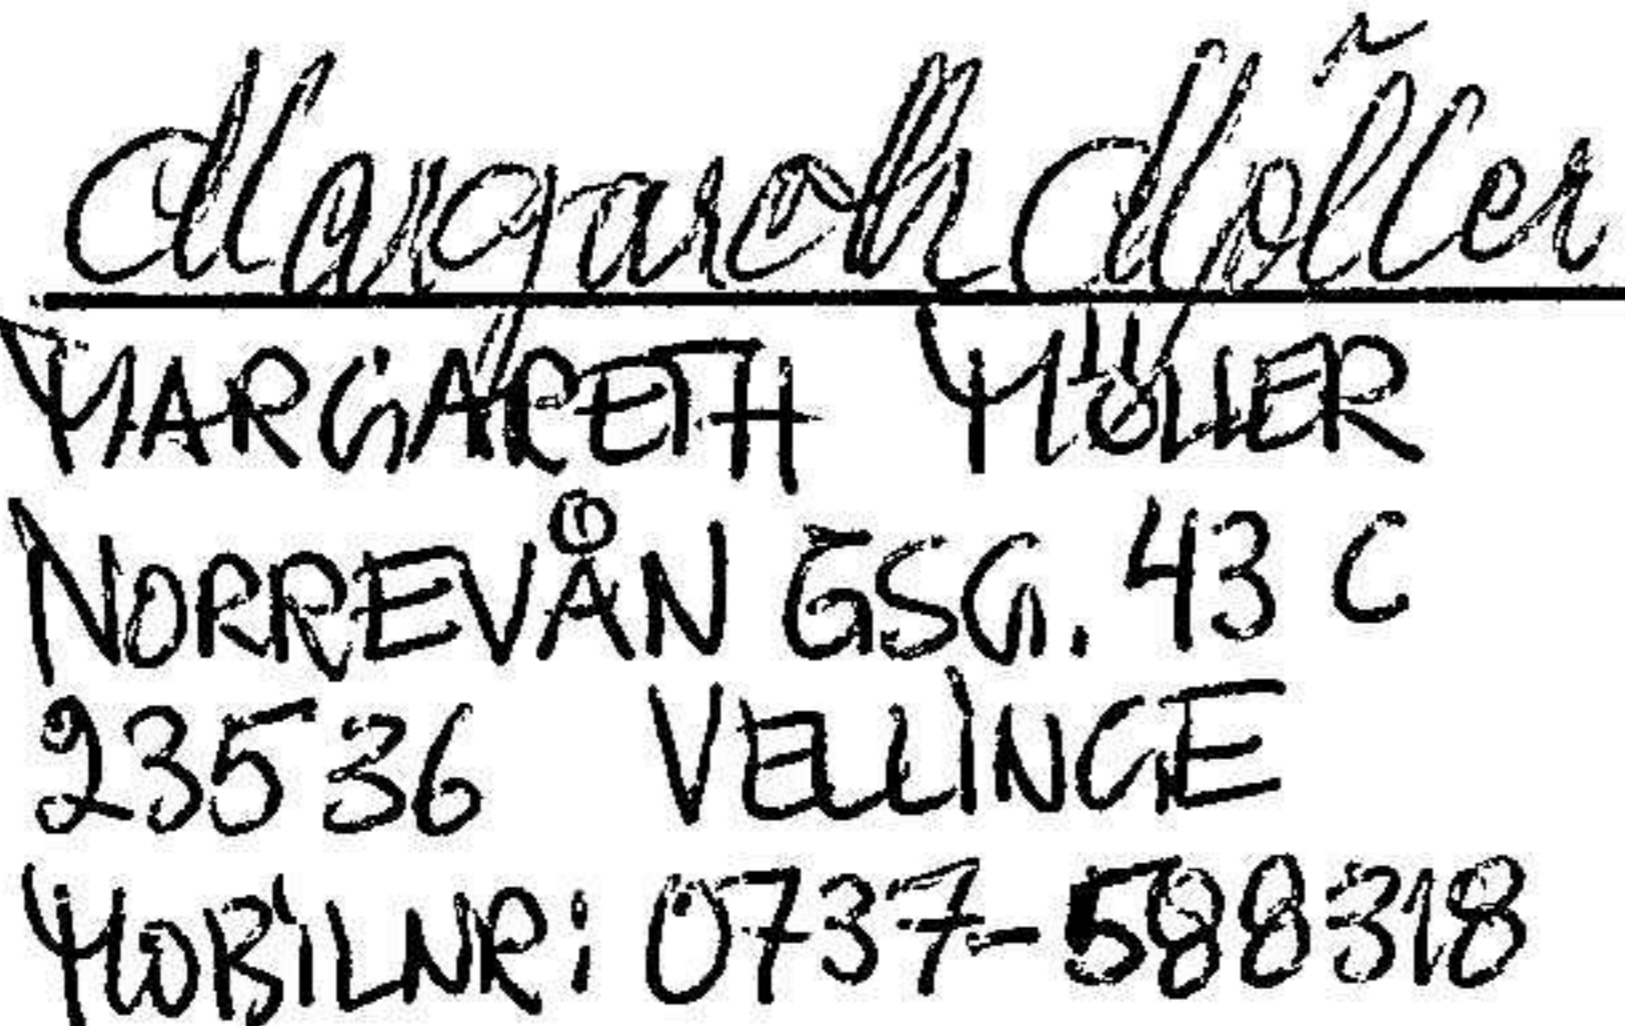 Margareth Möller
MARGARETH MÖLLER
NORREVÅNGSG. 43 C
23536 VELLINGE
MOBILNR: 0737-588318